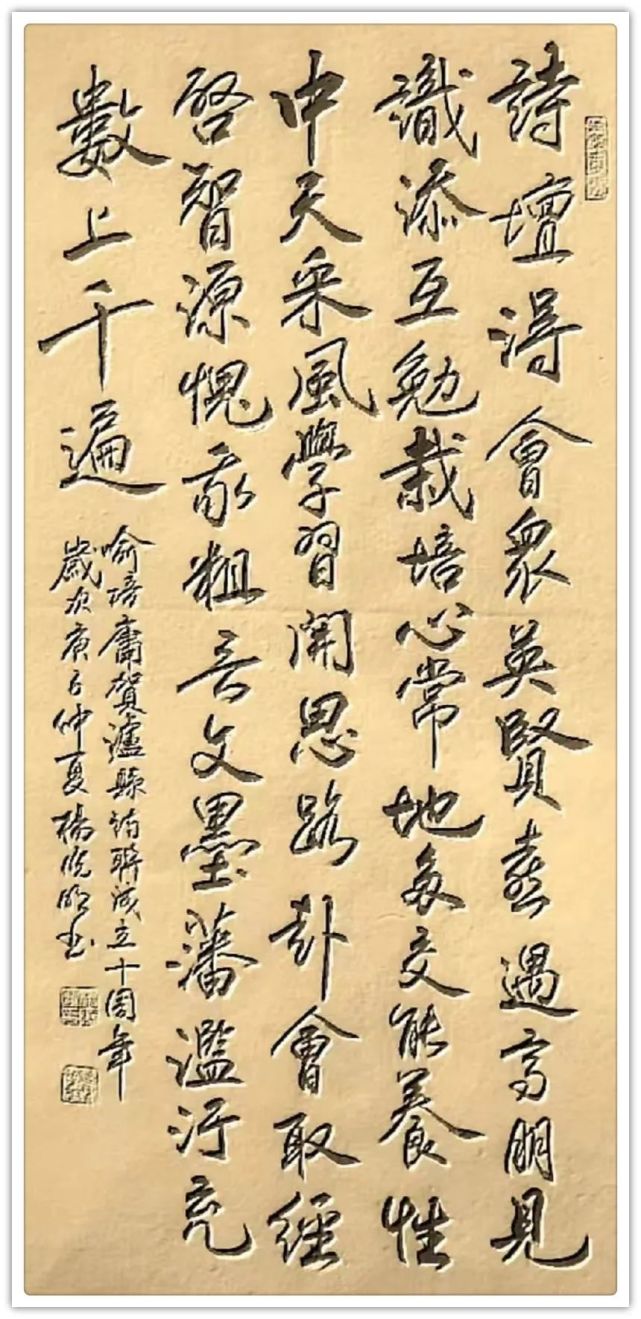 詩壇得會衆英賢喜遇高朋見
識添互勉栽培心常地多交能養性
中天采風學習開思路赴會取經
啓智源愧我粗言文墨藩濫汙充
數上千遍
喻培庸賀瀘縣詩聯成立十周年
歲次庚子仲夏楊書